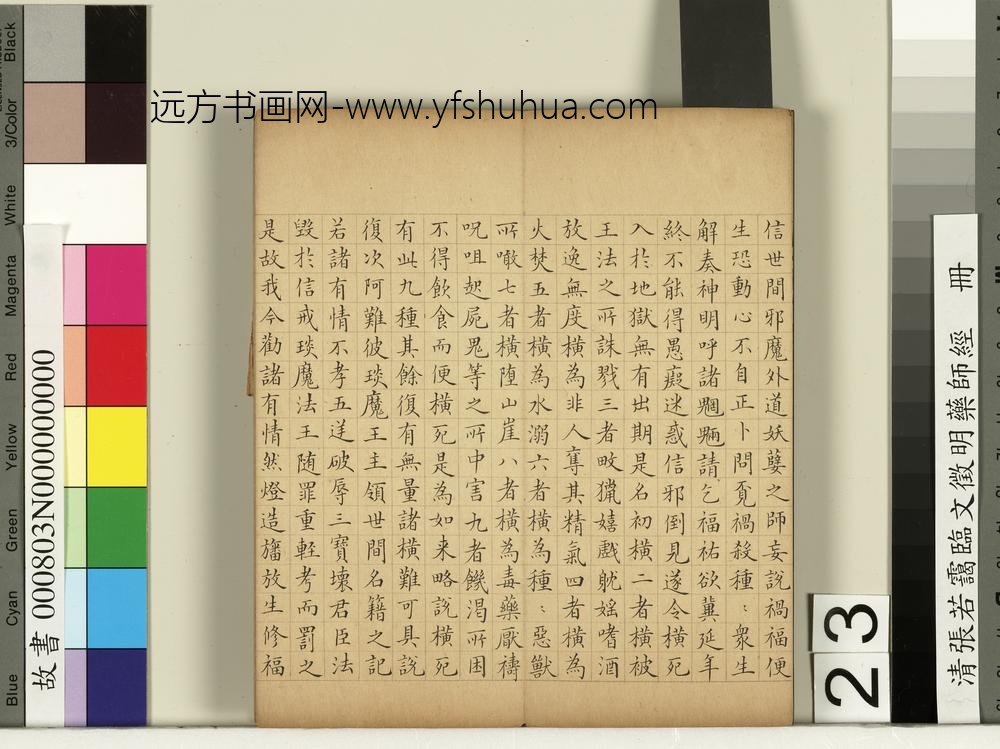 远方书画网-www.yfshuhua.com
信世間邪魔外道妖孽之師妄說禍福便
生恐動心不自正卜問覓禍殺種〻衆生
解奏神明呼諸魍魎請乞福祐欲冀延年
終不能得愚癡迷惑信邪倒見遂令橫死
入於地獄無有出期是名初橫二者橫被
王法之所誅戮三者畋獵嬉戲躭婬嗜酒
放逸無度橫為非人奪其精氣四者橫為
火焚五者橫為水溺六者橫為種〻惡獸
所噉七者橫墮山崖八者橫為毒藥厭禱
呪咀起屍鬼等之所中害九者饑渴所困
不得飲食而便橫死是為如来略說橫死
有此九種其餘復有無量諸橫難可具說
復次阿難彼琰魔王主領世間名籍之記
若諸有情不孝五逆破辱三寶壞君臣法
毀於信戒琰魔法王随罪重輕考而罰之
是故我今勸諸有情然燈造旛放生修福
清張若靄臨文徵明藥師經 冊
故書 000803N000000000
23
3/Color
Black
White
Magenta
Red
Yellow
Green
Cyan
Blue